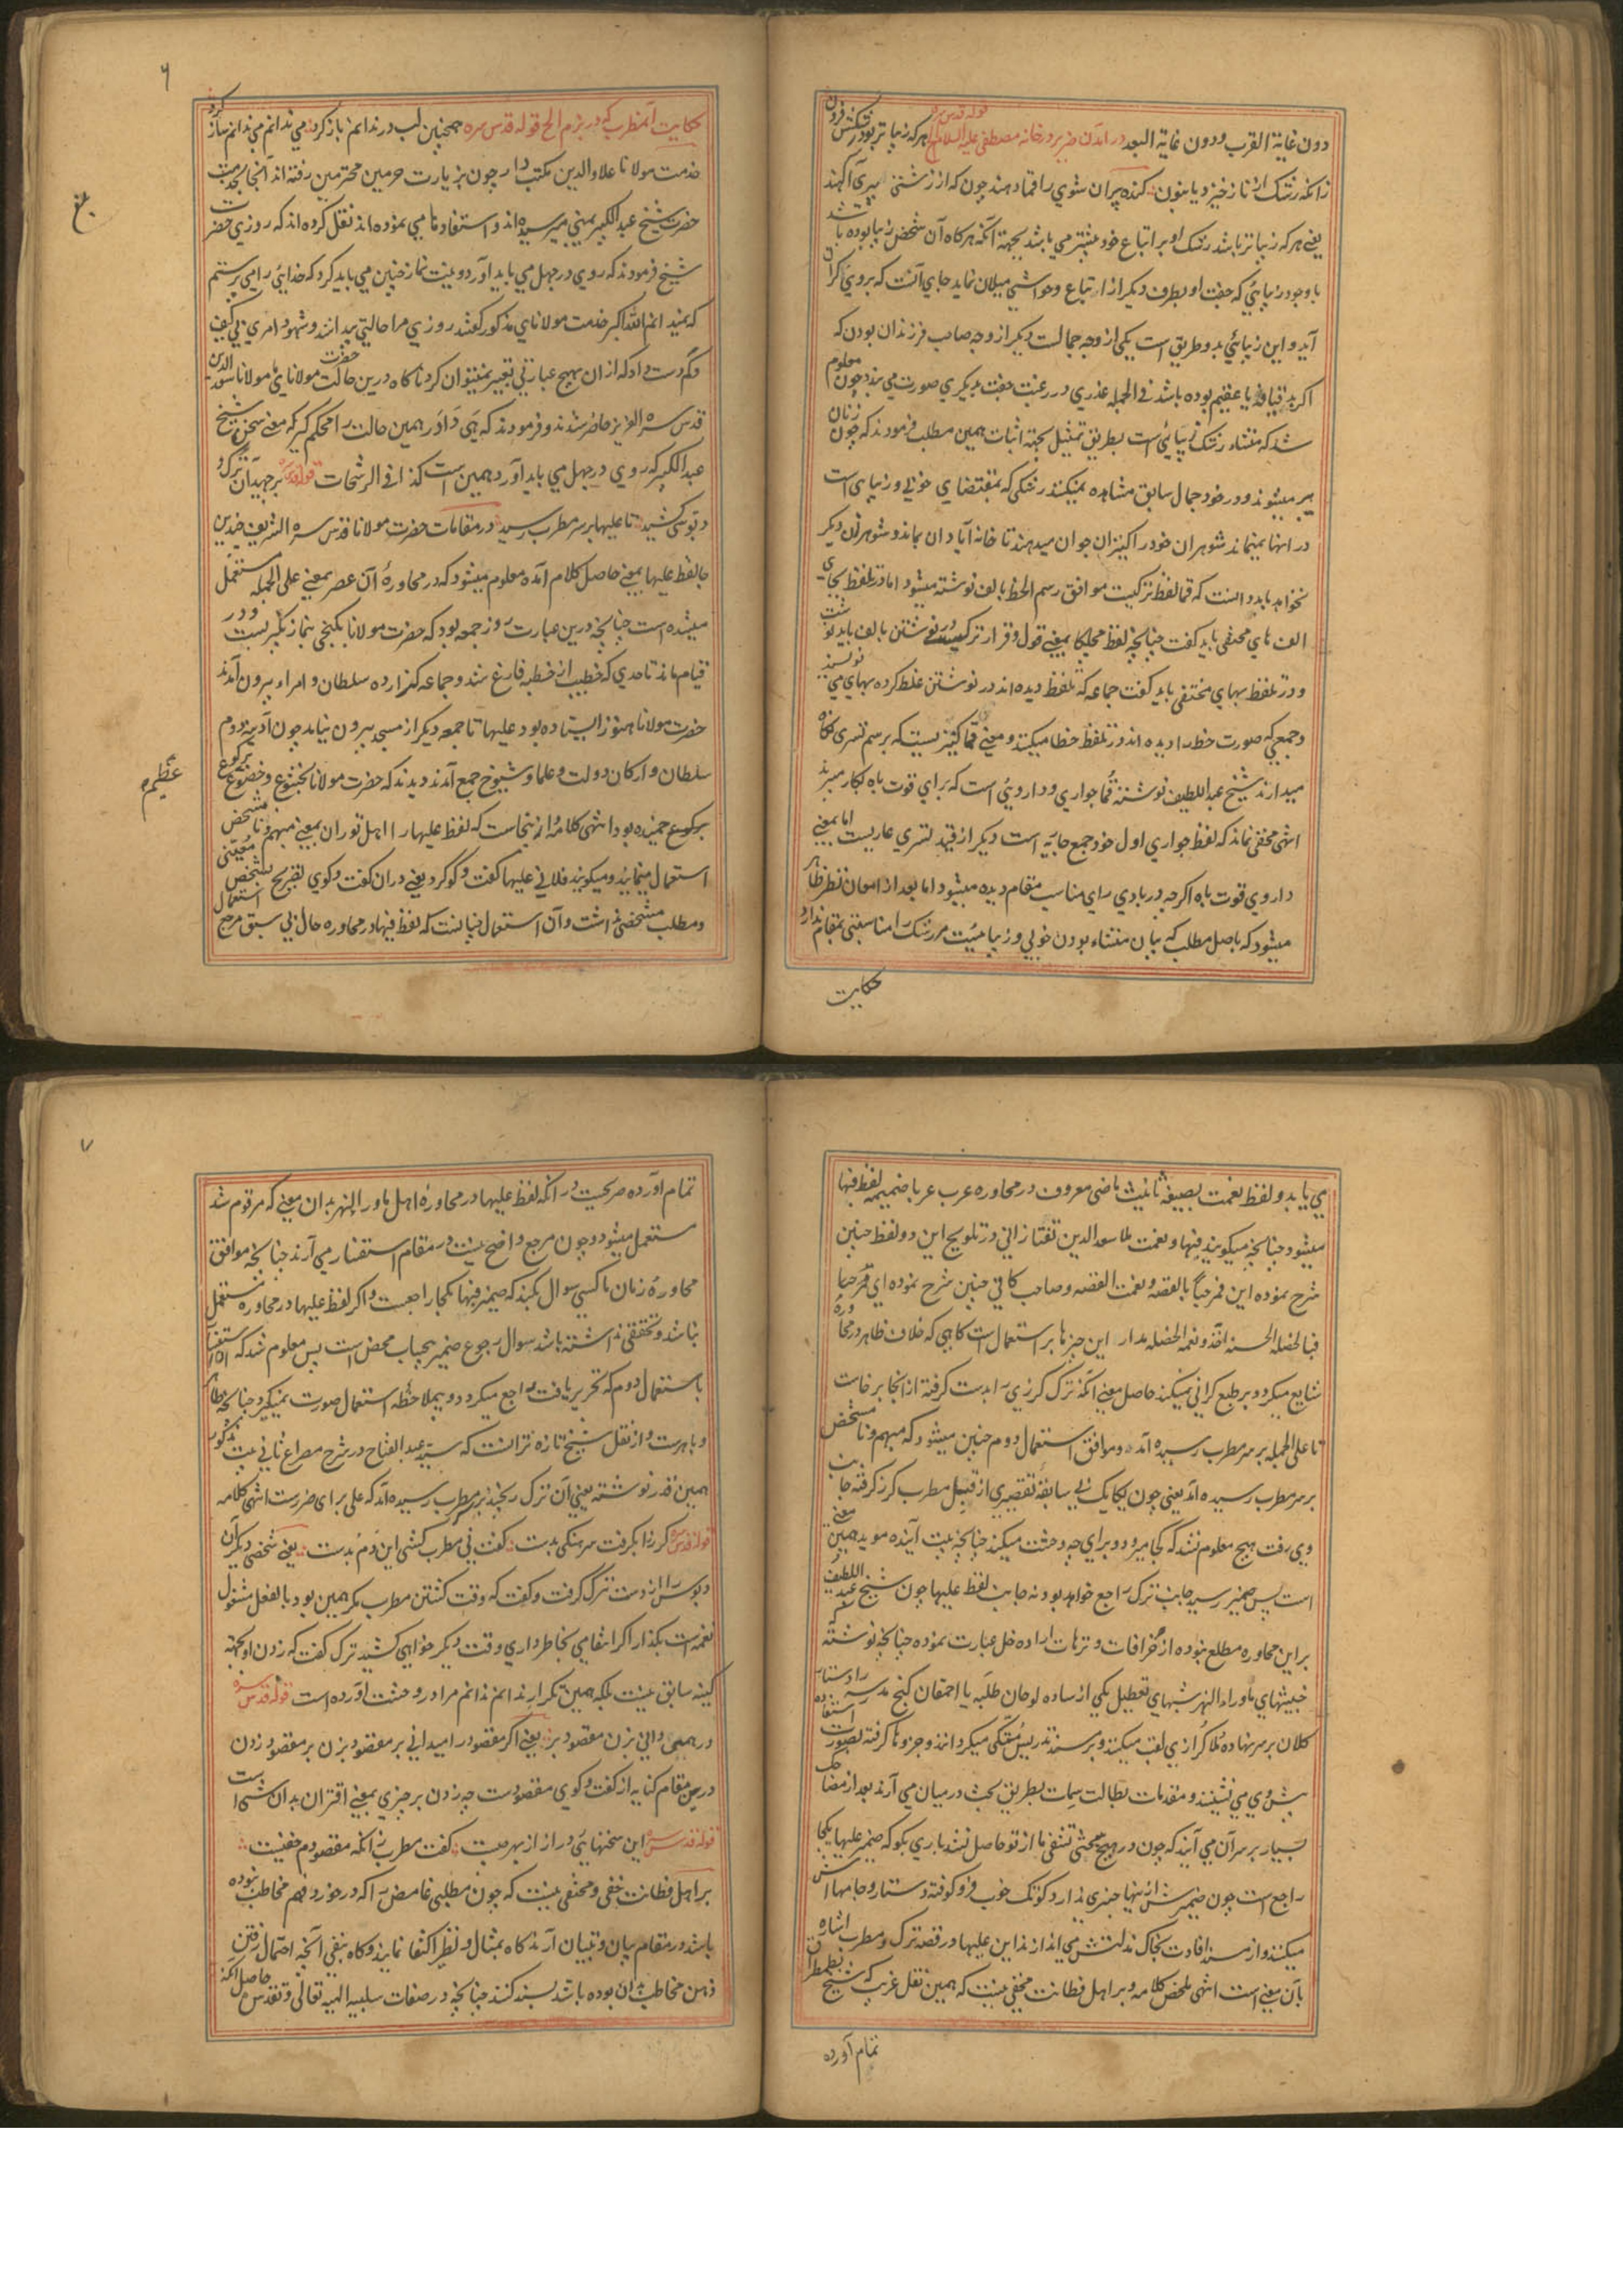 دون غایة القرب ودون غایة البعد در آمدن ضریر در خانه مصطفی علیه السلام الخ قوله قدس سره هرکه زیباتر بود رشکش فزون
زانکه رشک از ناز خیزد یا بنون کنده پیران شوی را قما دهند چون که از زشتی پیری آکهند
یعنی هرکه زیباتر باشد رشک او بر اتباع خود بیشتر می باشد بجهة آنکه هرکاه آن شخص زیبا بوده باشد
باوجود زیبایی که جفت او بطرف دیکر از اتباع و حواشی میلان نماید جای آنست که بروی کران
آید و این زیبایی بدو طریق است یکی از وجه جمالست دیکر از وجه صاحب فرزندان بودن که
اکر بد قیافه یا عقیم بوده باشد فی الجمله عذری در رغبت جفت بدیکری صورت می بندد چون معلوم
شد که منشاء رشک زیبایی است بطریق تمثیل بجهة اثبات همین مطلب فرمودند که چون زنان
پیر میشوند و در خود جمال سابق مشاهده نمیکنند رشکی که بمقتضای خوبی و زیبایی است
در انها نمیماند شوهران خود را کنیزان جوان میدهند تا خانه آبادان بماند و شوهر زن دیکر
نخواهد باید دانست که قما لفظ ترکیست موافق رسم الخط بالف نوشته میشود اما در تلفظ بجای
الف های مختفی باید کفت چنانچه لفظ مچلکا بمعنی قول و قرار ترکیست در نوشتن بالف باید نوشت
و در تلفظ بهای مختفی باید کفت جماعه که تلفظ دیده اند در نوشتن غلط کرده بهای می نویسند
و جمعی که صورت خط را دیده اند در تلفظ خطا میکنند و معنی قما کنیز نیست که برسم تسری نکاه
میدارند شیخ عبد اللطیف نوشتند قما جواری و دارویی است که برای قوت باه بکار میبرند
انتهی مخفی نماند که لفظ جواری اول خود جمع جاریه است دیکر از قید تسری عاریست اما بمعنی
داروی قوت باه اکرچه در بادی رای مناسب مقام دیده میشود اما بعد از امعان نظر ظاهر
میشود که باصل مطلب که بیان منشاء بودن خوبی و زیبائیست مر رشک را مناسبتی بمقام ندارد
حکایت
۶
حکایت آن مطرب که در بزم الخ قوله قدس سره همچنین لب در ندانم باز کرد می ندانم می ندانم ساز کرد
خدمت مولانا علاوالدین مکتب دار چون بزیارت حرمین محترمین رفته اند آنجا بخدمت
حضرت شیخ عبد الکبیر یمنی میرسیده اند و استفادها می نموده اند نقل کرده اند که روزی حضرت
شیخ فرمودند که روی در جهل می باید آورد و نیت نماز چنین می باید کرد که خدایی را می پرستم
که نمیدانم الله اکبر خدمت مولانای مذکور کفتند روزی مرا حالتی پیدا شد و شهود امری بی کیف
و کم دست داد که از ان بهیچ عبارتی تعبیر نمیتوان کرد ناکاه درین حالت حضرت مولانای ما مولانا سعد الدین
قدس سره العزیز حاضر شدند و فرمودند که هی دادر همین حالت را محکم کیر که معنی سخن شیخ
عبد الکبیر که روی در جهل می باید آورد همین است کذا فی الرشحات قوله قدس سره برجهید آن ترک و
دبوسی کشید تا علیها بر سر مطرب رسید در مقامات حضرت مولانا قدس سره الشریف چندین
جا لفظ علیها بمعنی حاصل کلام آمده معلوم میشود که در محاورهٔ آن عصر بمعنی علی الجمله مستعمل
میشده است چنانچه درین عبارت روز جمعه بود که حضرت مولانا بکنجی بنماز تکبیر بست و در
قیام ماند تا حدی که خطیب از خطبه فارغ شد و جماعه کزارده سلطان و امرا بیرون آمدند
حضرت مولانا هنوز ایستاده بود علیها تا جمعه دیکر از مسجد بیرون نیامد چون آدینه دوم
سلطان و ارکان دولت و علما و شیوخ جمع آمدند دیدند که حضرت مولانا بخشوع و خضوع برکوع
برکوع خمیده بود انتهی کلامه از ینجاست که لفظ علیها را اهل توران بمعنی مبهم و نا مشخص
استعمال مینمایند و میکویند فلانی علیها کفت و کو کرد یعنی در ان کفت و کوی تصریح بشخص معینی
و مطلب مشخصی نداشت و آن استعمال چنانست که لفظ فیها در محاوره حال بی سبق مرجع استعمال
عظیم
می یابد و لفظ نعمت بصیغهٔ تانیث ماضی معروف در محاوره عرب عربا ضمیمه لفظ فبها
میشود چنانچه میکویند فبها و نعمت ملا سعد الدین تفتازانی در تلویح این دو لفظ چنین
شرح نموده این فمرحبا بالقصه و نعمت القصه و صاحب کافی چنین شرح نموده ای فمرحبا
فبالخصله الحسنه اخذ و نعم الخصله مدار این چیزها بر استعمال است کاهی که خلاف ظاهر در محاوره
شایع میکردد بر طبع کرانی نمیکند حاصل معنی آنکه ترک کرزی را بدست کرفته از انجا برخاست
تا علی الجمله بر سر مطرب رسیده آمد و موافق استعمال دوم چنین میشود که مبهم و نا مشخص
بر سر مطرب رسیده آمد یعنی چون یکایک بی سابقهٔ تقصیری از قبل مطرب کرز کرفته جانب
وی رفت هیچ معلوم نشد که کجا میرود و برای چه وحشت میکند چنانچه بیت آینده موید همین معنی
است پس ضمیر رسید جانب ترک راجع خواهد بود نه جانب لفظ علیها چون شیخ عبد اللطیف
براین محاوره مطلع نبوده از خرافات و ترهات اراده خل عبارت نموده چنانچه نوشته که
خبیثهای ماوراء النهر شبهای تعطیل یکی از ساده لوحان طلبه یا احمقان کنج مدرسه را دستار
کلان بر سر نهاده ملا کرازی لقب میکنند و بر مسند تدریس متکی میکردانند و جزوها کرفته بصورت استفاده
پیش وی می نشینند و مقدمات بطالت سمات بطریق بحث در میان می آرند بعد از مضاحک
بسیار بر سر آن می آیند که چون در هیچ بحثی تشفی ما از تو حاصل نشد باری بکو که ضمیر علیها بکجا
راجع است چون ضمیرش از ینها خبری ندارد کوتک خوب فرو کوفته دستار و جامها اش
میکنند و از مسند افادت بخاک مذلتش می اندازند این علیها در قصه ترک و مطرب اشاره
بآن معنی است انتهی ملخص کلامه و بر اهل فطانت مخفی نیست که همین نقل غریب که شیخ بطمطراق
تمام آورده
۷
تمام آورده صریحیست در آنکه لفظ علیها در محاورهٔ اهل ماورا النهر بدان معنی که مرقوم شد
مستعمل میشود و چون مرجع واضح نیست در مقام استفسار می آرند چنانچه موافق
محاورهٔ زمان ما کسی سوال بکند که ضمیر فبها بکجا راجعست و اکر لفظ علیها در محاوره مستعمل
نباشد و تحققی نداشته باشد سوال رجوع ضمیر بیحساب محض است پس معلوم شد که استفسار
باستعمال دوم که تحریر یافت راجع میکردد و بیملاحظه استعمال صورت نمیکیرد چنانچه ظاهر
و باهرست و از نقل شیخ تازه تر آنست که سید عبد الفتاح در شرح مصراع ثانی بیت مذکور
همین قدر نوشته یعنی آن ترک رنجیده بر سر مطرب رسیده آمد که علی برای ضررست انتهی کلامه
قوله قدس سره کرز را بکرفت سرهنکی بدست کفت نی مطرب کشی این دم بدست یعنی شخصی دیکر آن
دبوس را از دست ترک کرفت و کفت که وقت کشتن مطرب مکر همین بود بالفعل مشغول
نغمه است بکذار اکر انتقامی بخاطر داری وقت دیکر خواهی کشید ترک کفت که زدن او بجهة
کینه سابق نیست بلکه همین تکرار ندانم ندانم مرا در وحشت آورده است قوله قدس سره
در همی دانی بزن مقصود بر یعنی اکر مقصود را میدانی بر مقصود بزن بر مقصود زدن
درین مقام کنایه از کفت و کوی مقصودست چه زدن بر چیزی بمعنی اقتران بدان شی است
قوله قدس سره این سخنهایی دراز از بهر چیست کفت مطرب زانکه مقصودم خفیست
بر اهل فطانت خفی و مختفی نیست که چون مطلبی غامض را که در خورد فهم مخاطب نبوده
باشد در مقام بیان و تبیان آرند کاه بمثال و نظیر اکتفا نمایند و کاه بنفی آنچه احتمال رفتن
ذهن مخاطب بدان بوده باشد بسند کنند چنانچه در صفات سلبیه الهیه تعالی و تقدس حاصل آنکه